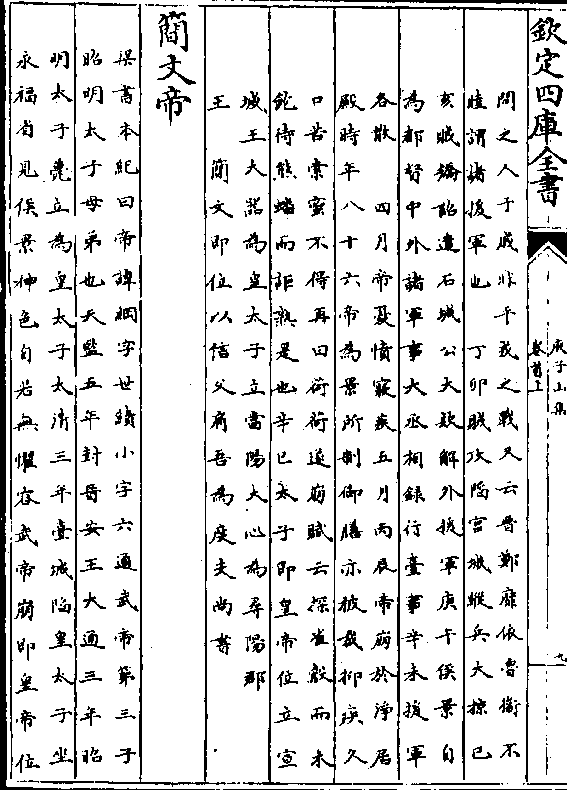 欽定四庫全書
庾子山集
卷首上
九
問之人干戚非平戎之戰又云晉鄭靡依魯衛不
睦謂諸援軍也　丁卯賊攻陷宫城縱兵大掠己
亥賊矯詔遣石城公大欵解外援軍庚午侯景自
為都督中外諸軍事大丞相録行臺事辛未援軍
各散　四月帝憂憤寢疾五月丙辰帝崩於淨居
殿時年八十六帝為景所制御膳亦被裁抑疾久
口苦索蜜不得再曰荷荷遂崩賦云探雀鷇而未
飽待熊蹯而詎熟是也辛巳太子即皇帝位立宣
城王大器為皇太子立當陽大心為尋陽郡
王　簡文即位以信父肩吾為度支尚書
簡文帝
梁書本紀曰帝諱綱字世纘小字六通武帝第三子
昭明太子母弟也天監五年封晉安王大通三年昭
明太子薨立為皇太子太清三年臺城陷皇太子坐
永福省見侯景神色自若無懼容武帝崩即皇帝位